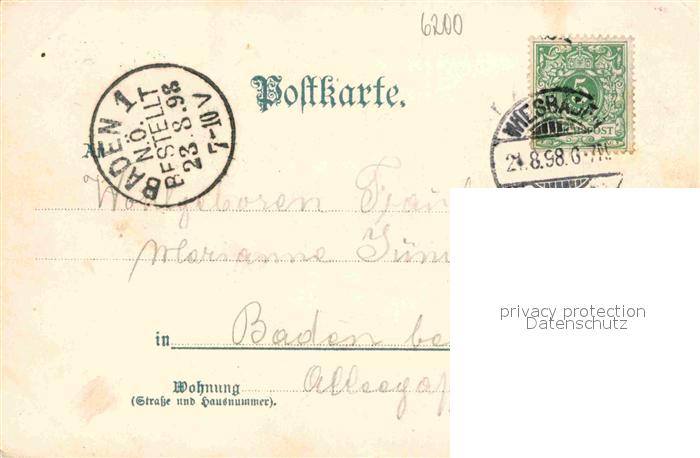 6200
Postkarte.
5
REICHSPOST
WIESBADEN
21.8.98.6-7N.
BADEN 1
N.Ö.
BESTELLT
23 8.98
7-10 V
An
Wohlgeboren
Marianne
in Baden be
Wohnung
(Straße und Hausnummer).
privacy protection
Datenschutz